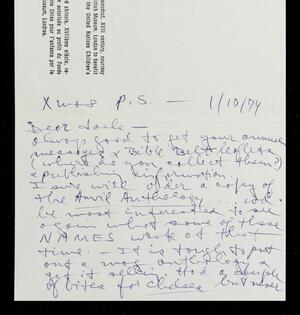 broschut, XVII century, courtesy
British Museum, London to benefit
the United Nations Children's
chinois, XVIIième siècle, re-
autorisée au profit du Fonds
Unies pour l'enfance par le
Museum, Londres.
Xmas P.S. — 1/10/74
Dear Jack —
Always good to get your annual
message & Bible Belt leaflets
(where do you collect them?)
& publishing information.
I sure will order a copy of
the Anvil Anthology ... will
be most interested to see
again what some of these
NAMES wrote at that
time. — It is tough to put
out a mag anthology &
get it sellin. Had a couple
of bites for Chelsea but never